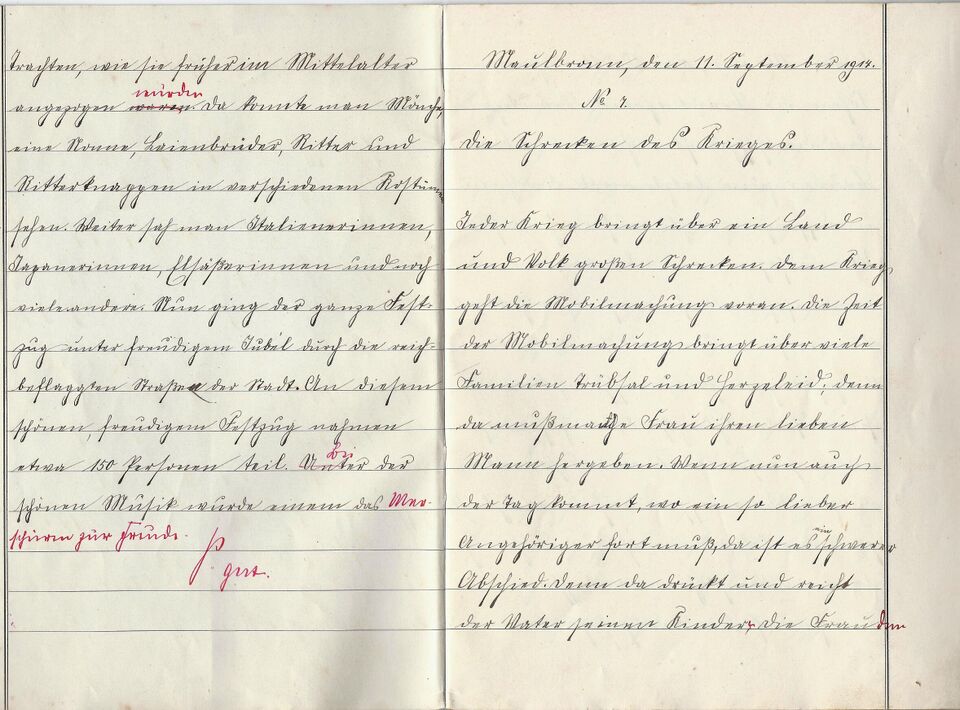 Trachten, wie sie früher im Mittelalter
würden
angezogen waren. Da konnte man Mönche,
eine Nonne, Laienbrüder, Ritter und
Ritterknappen in verschiedenen Kostümen
sehen. Weiter sah man Italienerinnen,
Japanerinnen, Elsäßerinnen und noch
viele andere. Nun ging der ganze Fest-
zug unter freudigem Jubel durch die reich-
beflaggten Straßen der Stadt. An diesem
schönen, freudigem Festzug nahmen
Bei
etwa 150 Personen teil. Unter der
schönen Musik wurde einem das
zur Freude.
gut.
Maulbronn, den 11. September 1914.
No 7.
Die Schrecken des Krieges.
Jeder Krieg bringt über ein Land
und Volk großen Schrecken. Dem Krieg
geht die Mobilmachung voran. Die Zeit
der Mobilmachung bringt über viele
Familien Trübsal und Herzeleid; denn
da muß manche Frau ihren lieben
Mann hergeben. Wenn nun auch
der Tag kommt, wo ein so lieber
ein
Angehöriger fort muß, da ist es schwerer
Abschied. Denn da drückt und reicht
der Vater seinen Kinder, die Frau dem